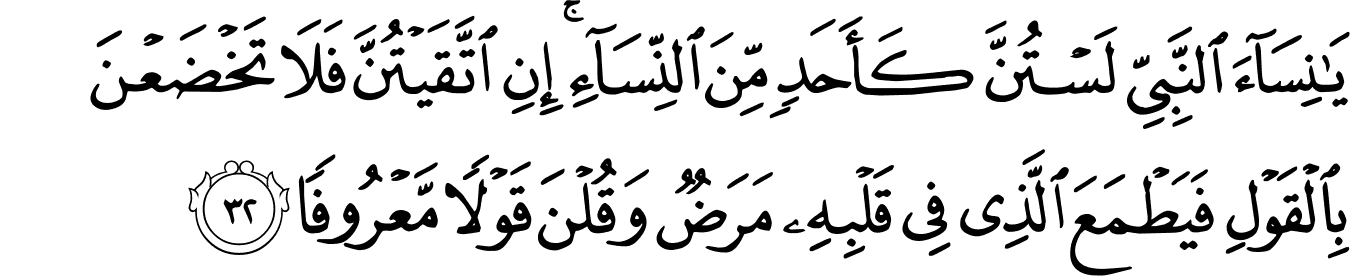 يَـٰنِسَآءَ ٱلنَّبِىِّ لَسْتُنَّ كَأَحَدٍ مِّنَ ٱلنِّسَآءِ ۚ إِنِ ٱتَّقَيْتُنَّ فَلَا تَخْضَعْنَ
بِٱلْقَوْلِ فَيَطْمَعَ ٱلَّذِى فِى قَلْبِهِۦ مَرَضٌ وَقُلْنَ قَوْلًا مَّعْرُوفًا ٣٢